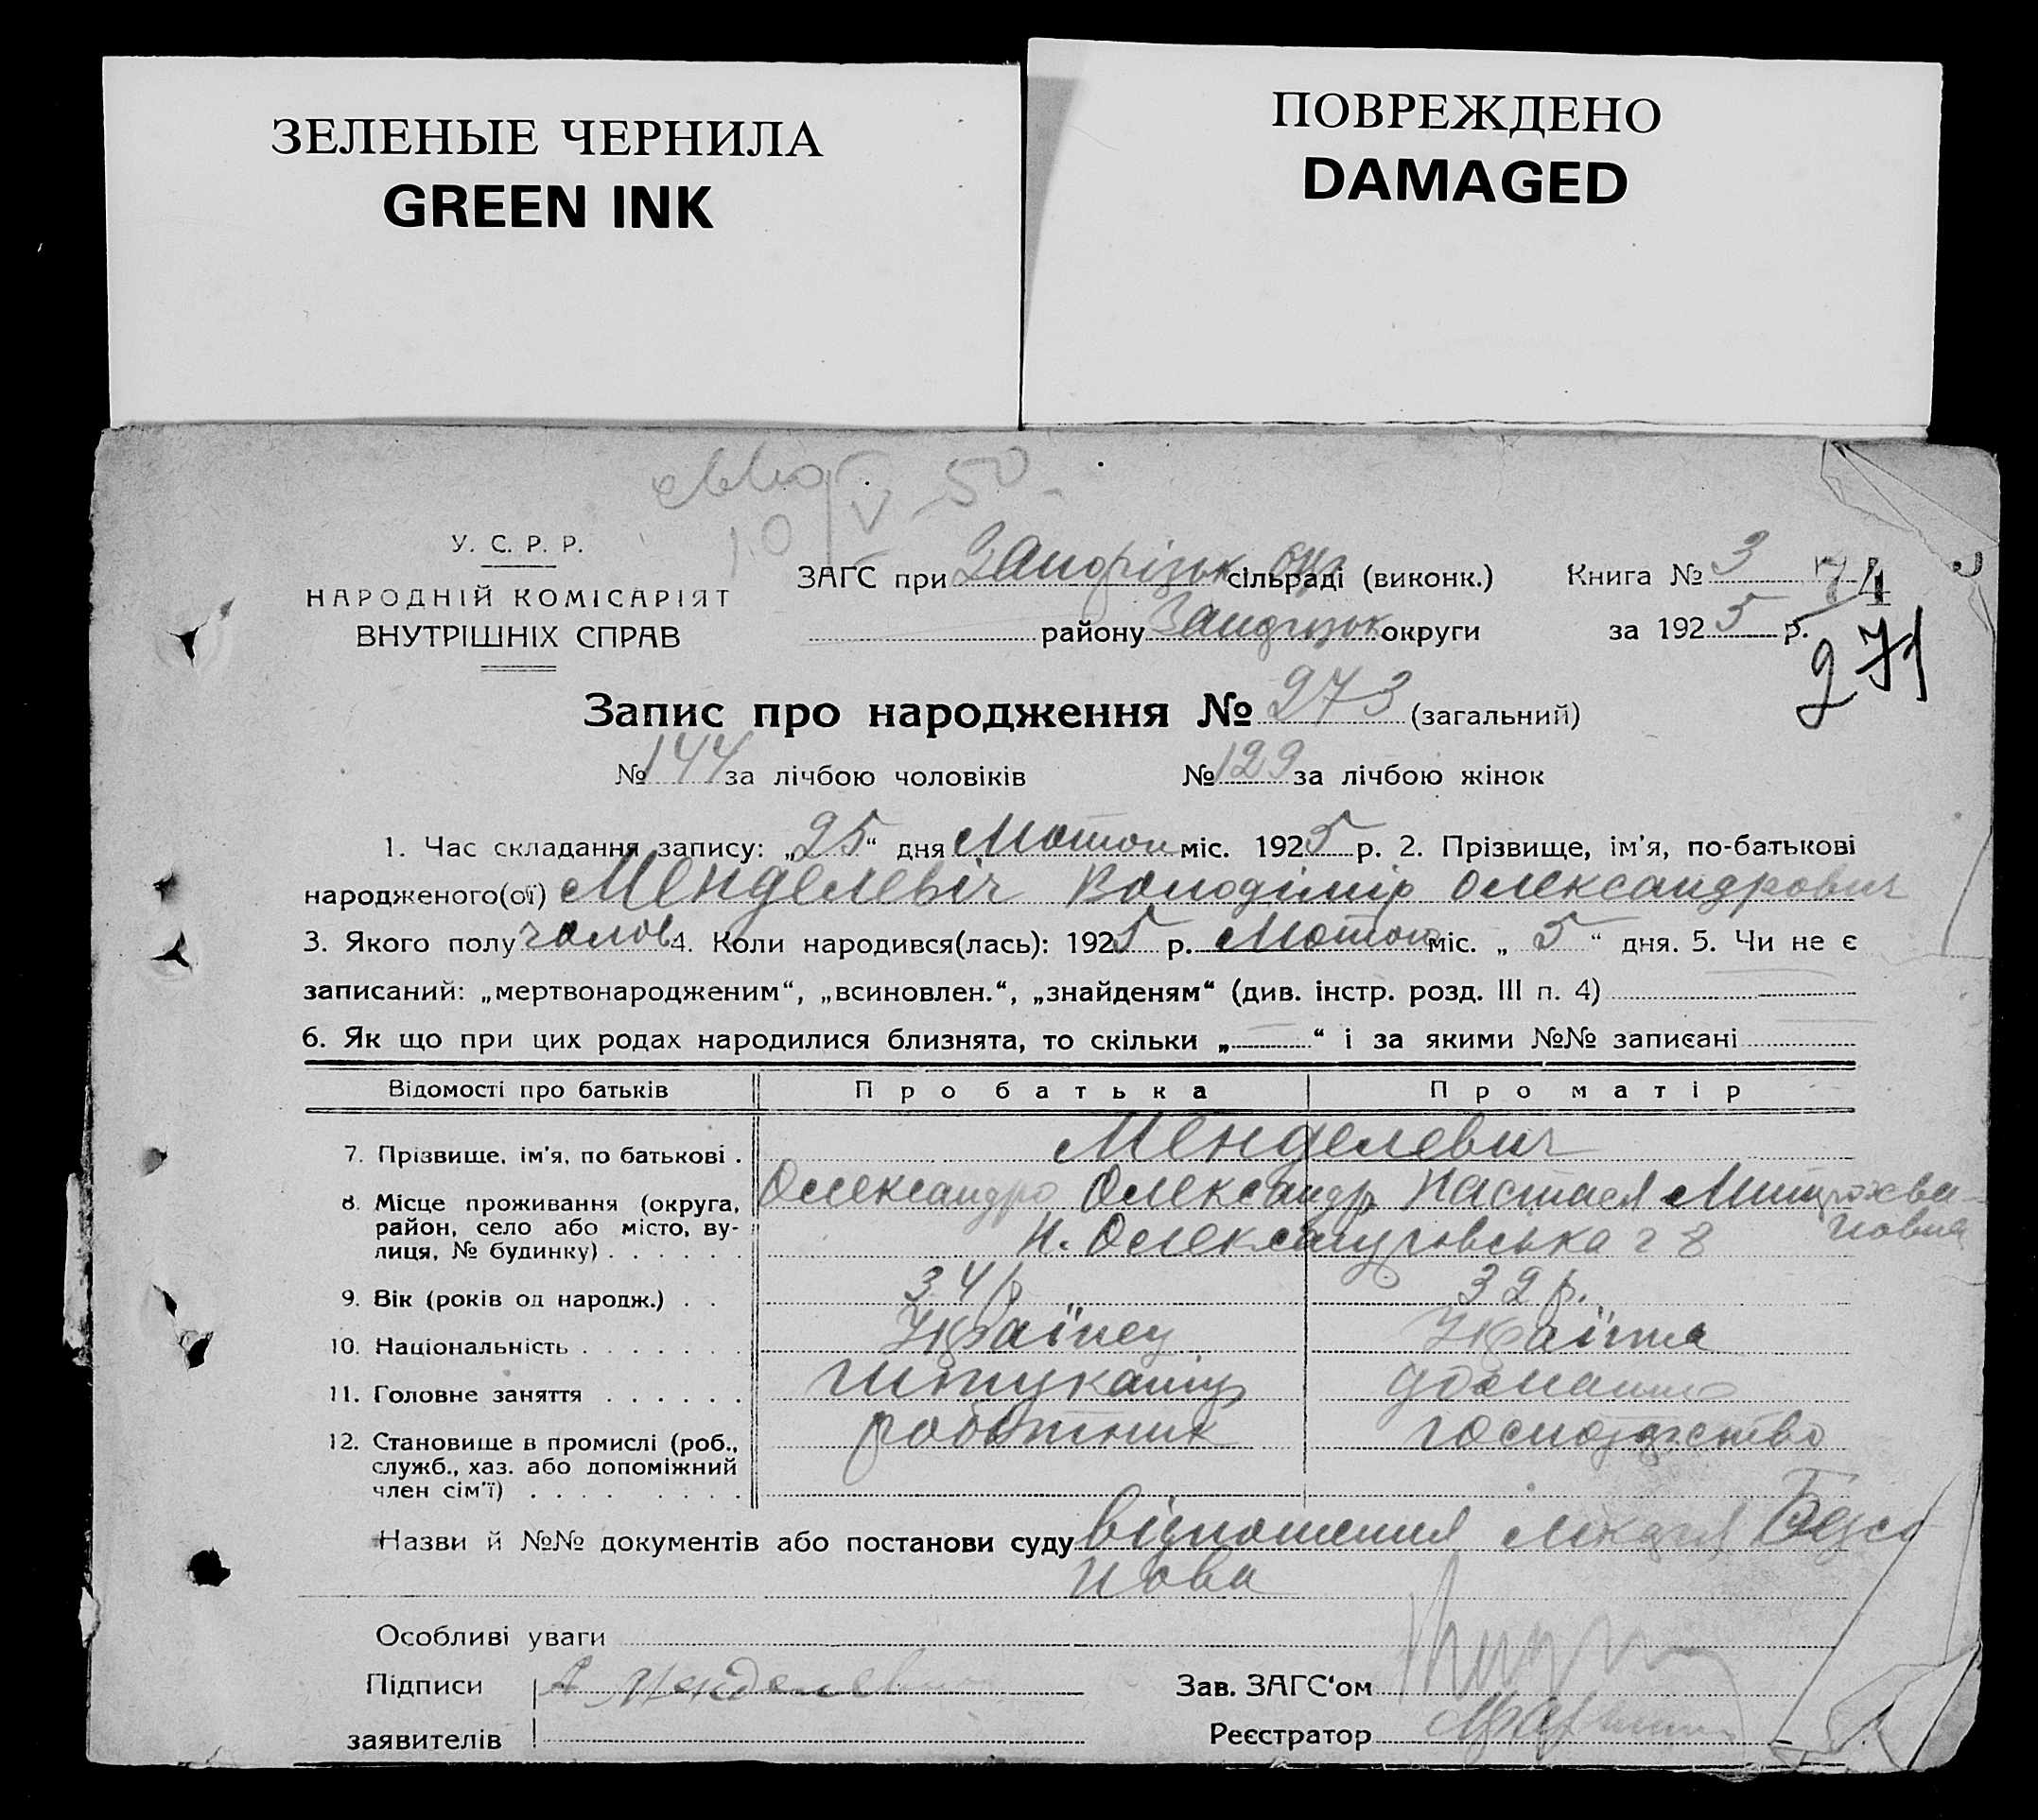 ЗЕЛЕНЫЕ ЧЕРНИЛА
GREEN INK
ПОВРЕЖДЕНО
DAMAGED
10/V-50
У. С. Р. Р.
НАРОДНІЙ КОМІСАРІЯТ
ВНУТРІШНІХ СПРАВ
ЗАГС при сільраді (виконк.)
Книга № 3
74
району округи
за 1925 р.
271
Запис про народження № 273 (загальний)
№ 144 за лічбою чоловіків № 129 за лічбою жінок
1. Час складання запису: „25“ дня Лютого міс. 1925 р. 2. Прізвище, ім'я, по-батькові
народженого(ої) Менделевіч Володімір Олександрович
3. Якого полу чолов 4. Коли народився(лась): 1925 р. Лютого міс. „5“ дня. 5. Чи не є
записаний: „мертвонародженим“, „всиновлен.“, „знайденям“ (див. інстр. розд. III п. 4)
6. Як що при цих родах народилися близнята, то скільки „—“ і за якими №№ записані
Відомості про батьків Про батька Про матір
7. Прізвище, ім'я, по батькові . Менделевич
Олександр Настася Митрохва-
новна
8. Місце проживання (округа,
район, село або місто, ву-
лиця, № будинку) . . . . . . Н. Олександровська 28
9. Вік (років од народж.) . . 34 р 32 р.
10. Національність . . . . . . . Українец Україн
11. Головне заняття . . . . . . штукатур домашнє
12. Становище в промислі (роб.,
служб., хаз. або допоміжний
член сім'ї) . . . . . . . . робітник господарство
Назви й №№ документів або постанови суду Відношення
нова
Особливі уваги
Підписи А. Менделевич Зав. ЗАГС'ом
заявителів Реєстратор